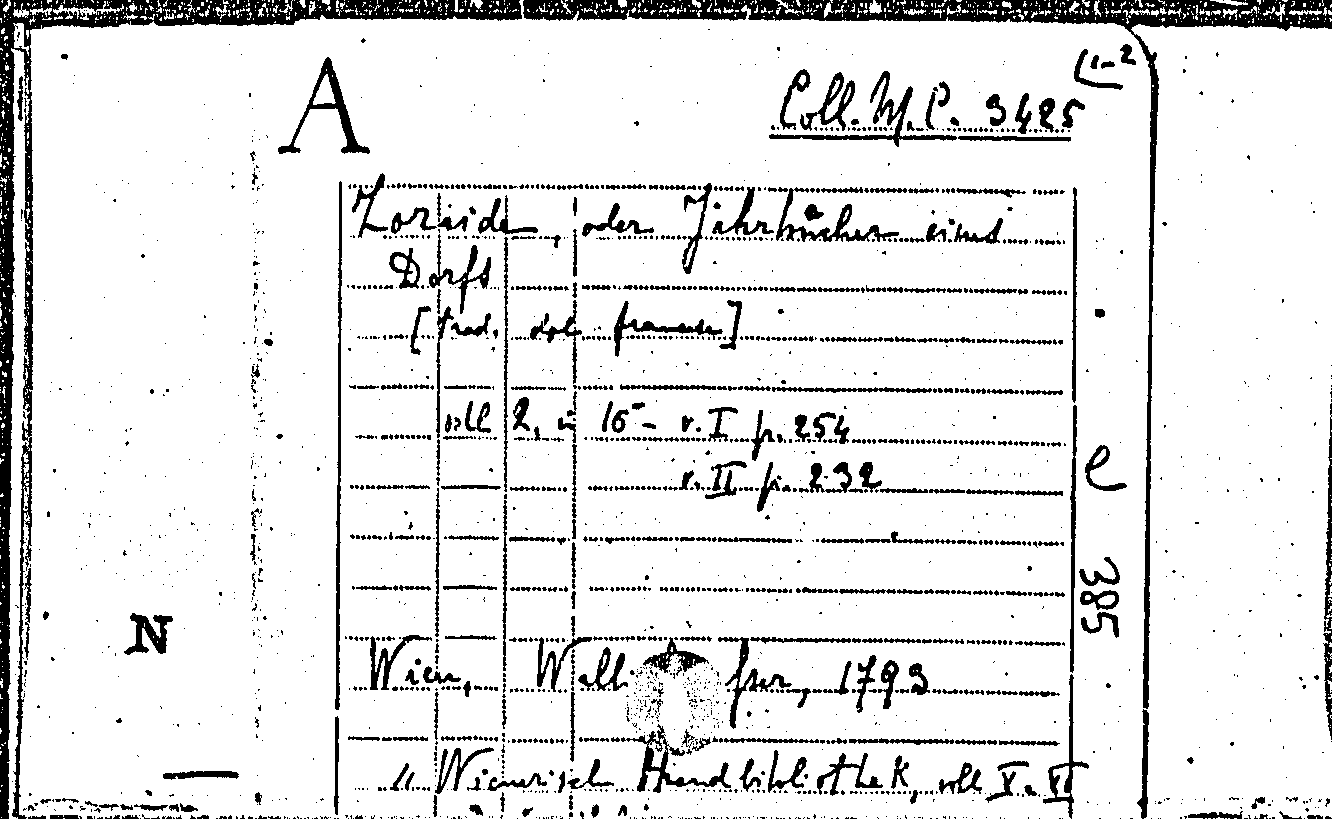 (1-2
A
Coll. M. P. 3425
Zoraide, oder Jahrbücher eines
Dorfs
[trad. dal francese]
voll 2, in 16 - v. I p. 254
v. II p. 232
e
385
N
Wien, Wall fser, 1793
" Wienerisch Handbibliothek, voll V. VI